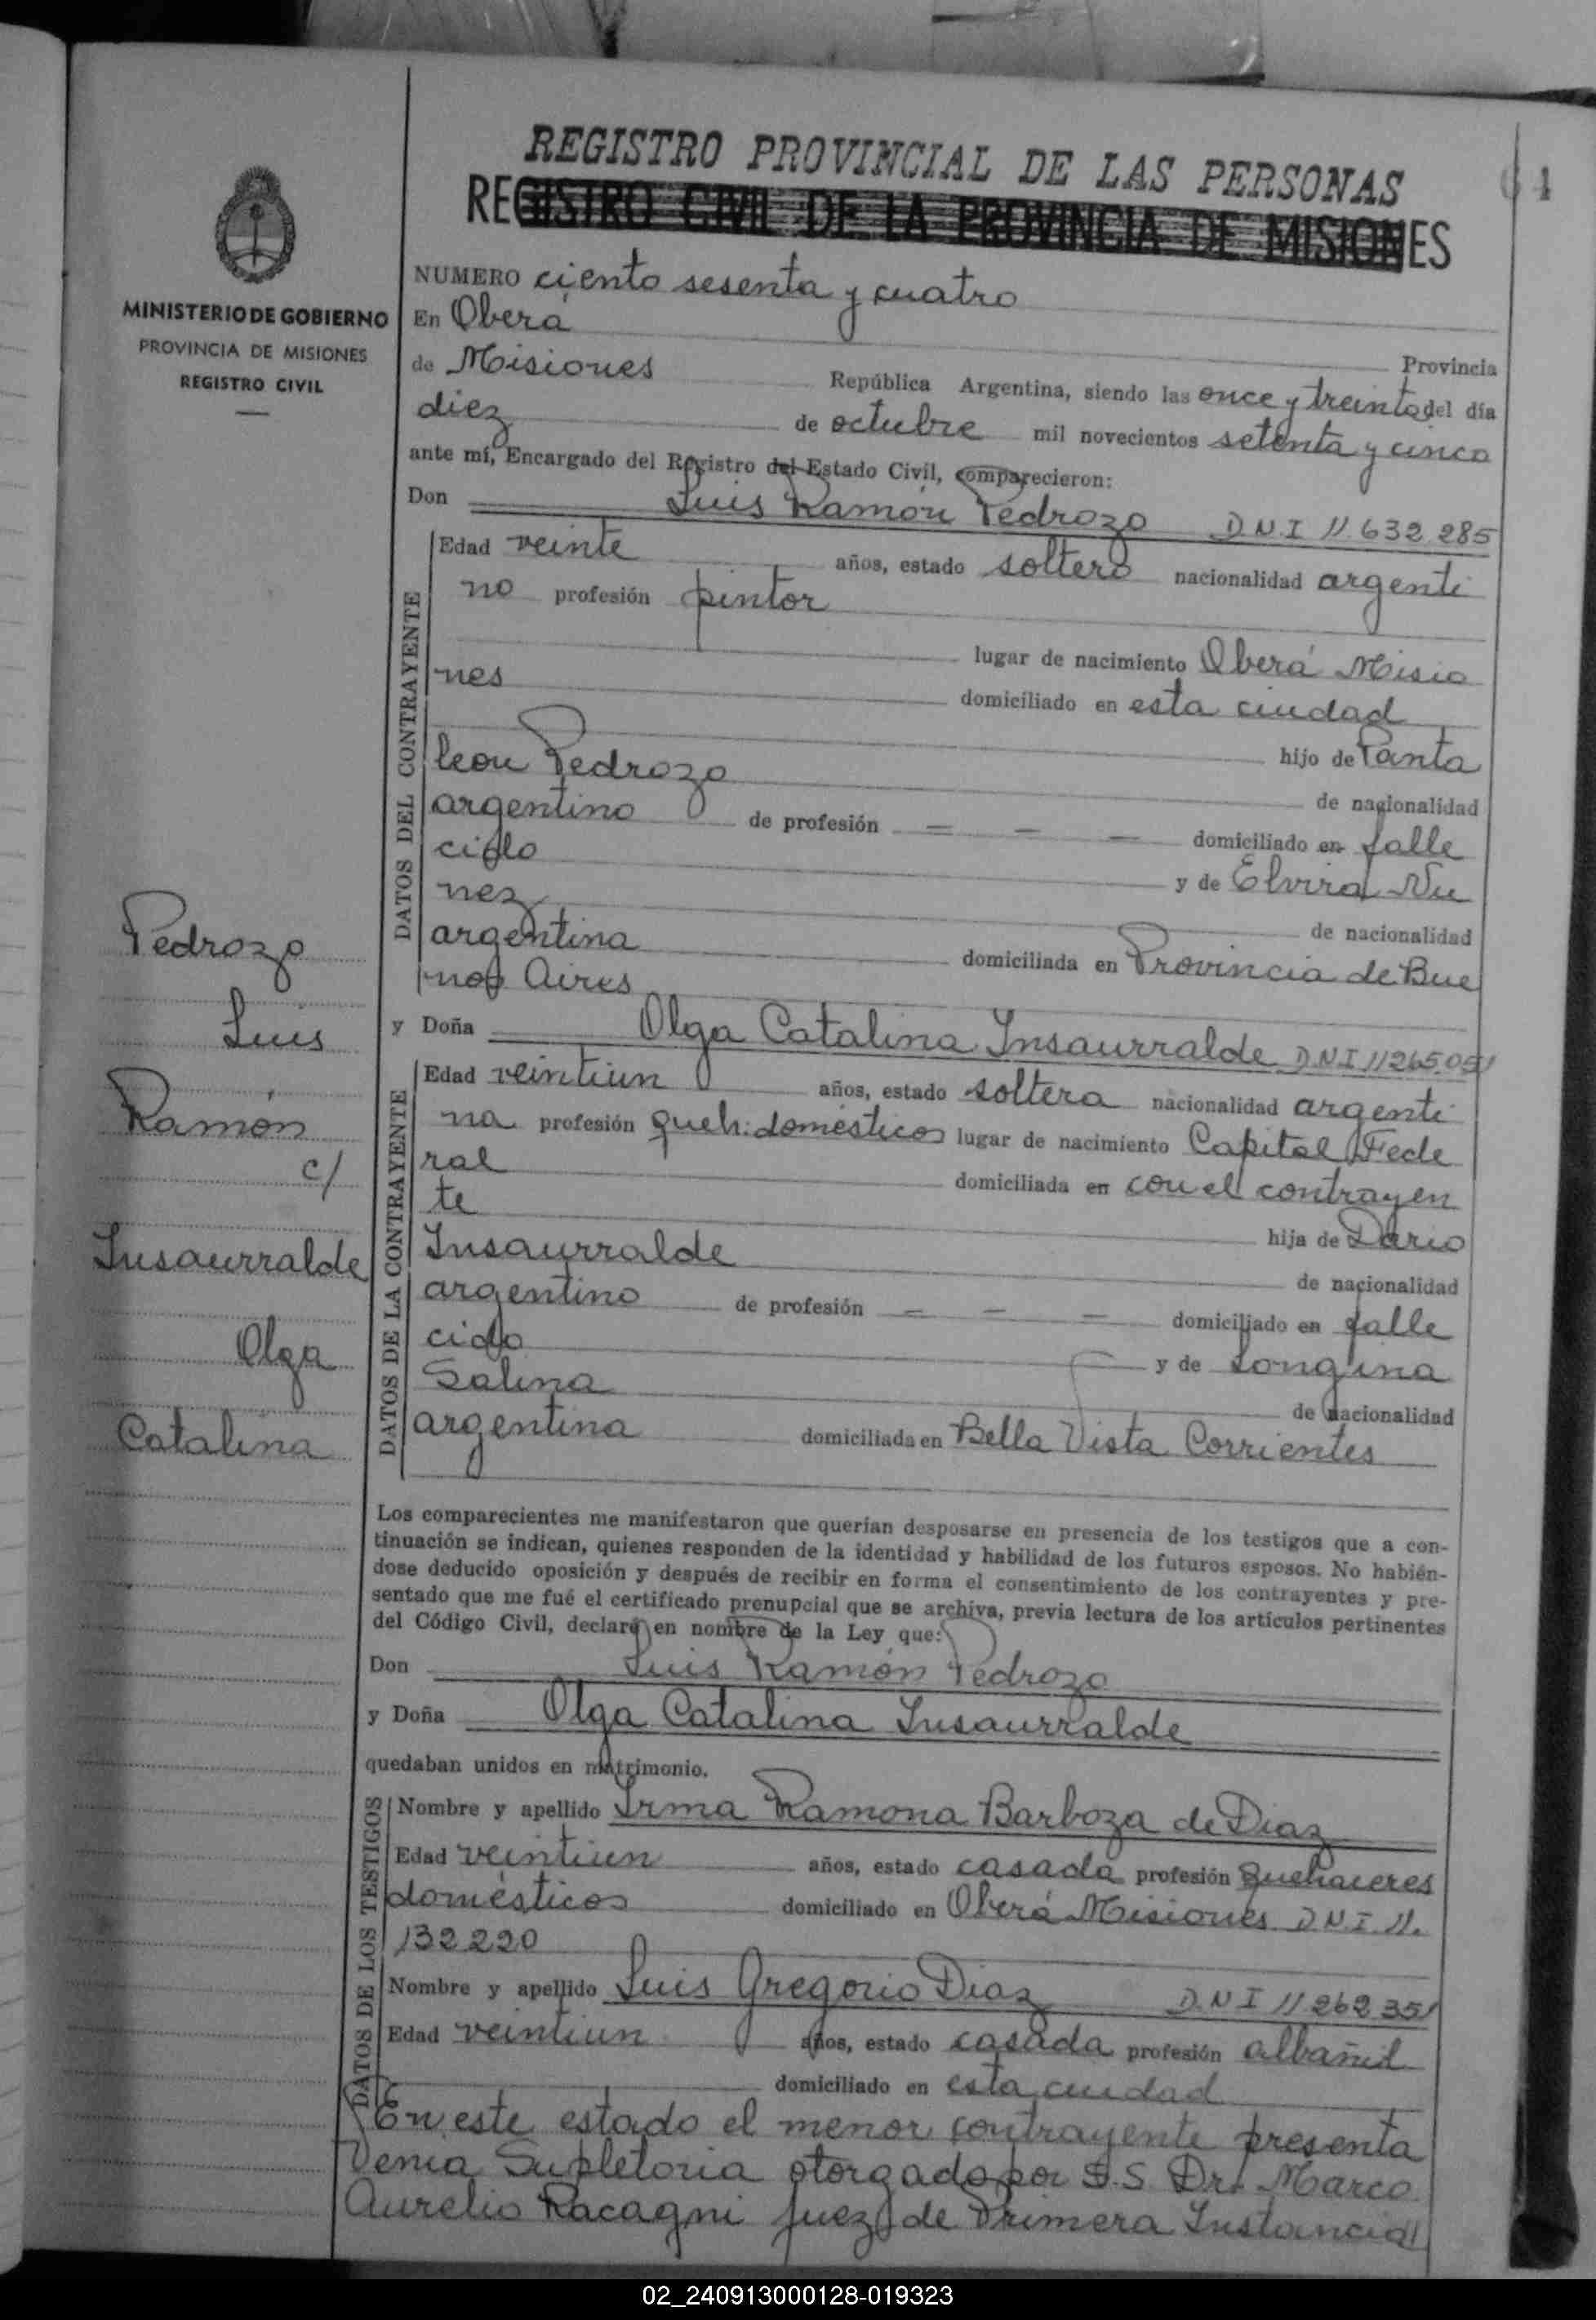 REGISTRO PROVINCIAL DE LAS PERSONAS
64
REGISTRO CIVIL DE LA PROVINCIA DE MISIONES
MINISTERIO DE GOBIERNO
PROVINCIA DE MISIONES
REGISTRO CIVIL
NUMERO ciento sesenta y cuatro
En Oberá Provincia
de Misiones República Argentina, siendo las once y treinta del día
diez de octubre mil novecientos setenta y cinco
ante mí, Encargado del Registro del Estado Civil, comparecieron:
Don Luis Ramón Pedrozo D.N.I 11.632.285
DATOS DEL CONTRAYENTE
Edad veinte años, estado soltero nacionalidad argenti
no profesión pintor
lugar de nacimiento Oberá Misio
nes domiciliado en esta ciudad
hijo de Panta
leon Pedrozo de nacionalidad
argentino de profesión — — — domiciliado en falle
cido y de Elvira Nu
nez de nacionalidad
argentina domiciliada en Provincia de Bue
nos Aires
y Doña Olga Catalina Insaurralde D.N.I 11265.051
DATOS DE LA CONTRAYENTE
Edad veintiun años, estado soltera nacionalidad argenti
na profesión queh. domésticos lugar de nacimiento Capital Fede
ral domiciliada en con el contrayen
te hija de Dario
Insaurralde de nacionalidad
argentino de profesión — — — domiciliado en falle
cido y de Longina
Salina de nacionalidad
argentina domiciliada en Bella Vista Corrientes
Pedrozo
Luis
Ramón
c/
Insaurralde
Olga
Catalina
Los comparecientes me manifestaron que querían desposarse en presencia de los testigos que a con-
tinuación se indican, quienes responden de la identidad y habilidad de los futuros esposos. No habién-
dose deducido oposición y después de recibir en forma el consentimiento de los contrayentes y pre-
sentado que me fué el certificado prenupcial que se archiva, previa lectura de los artículos pertinentes
del Código Civil, declaré en nombre de la Ley que:
Don Luis Ramón Pedrozo
y Doña Olga Catalina Insaurralde
quedaban unidos en matrimonio.
DATOS DE LOS TESTIGOS
Nombre y apellido Irma Ramona Barboza de Diaz
Edad veintiun años, estado casada profesión Quehaceres
domésticos domiciliado en Oberá Misiones D.N.I 11.
132220
Nombre y apellido Luis Gregorio Diaz D.N I 11.262 351
Edad veintiun años, estado casada profesión albañil
domiciliado en esta ciudad
En este estado el menor contrayente presenta
Venia Supletoria otorgado por S.S Dr. Marco
Aurelio Racagni juez de Primera Instancia
02_240913000128-019323